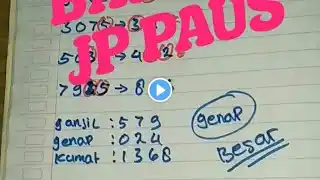 JP PAUS
3075→3
7935→8
ganjil : 579
genap : 024
kumat : 1368
genap
Besar